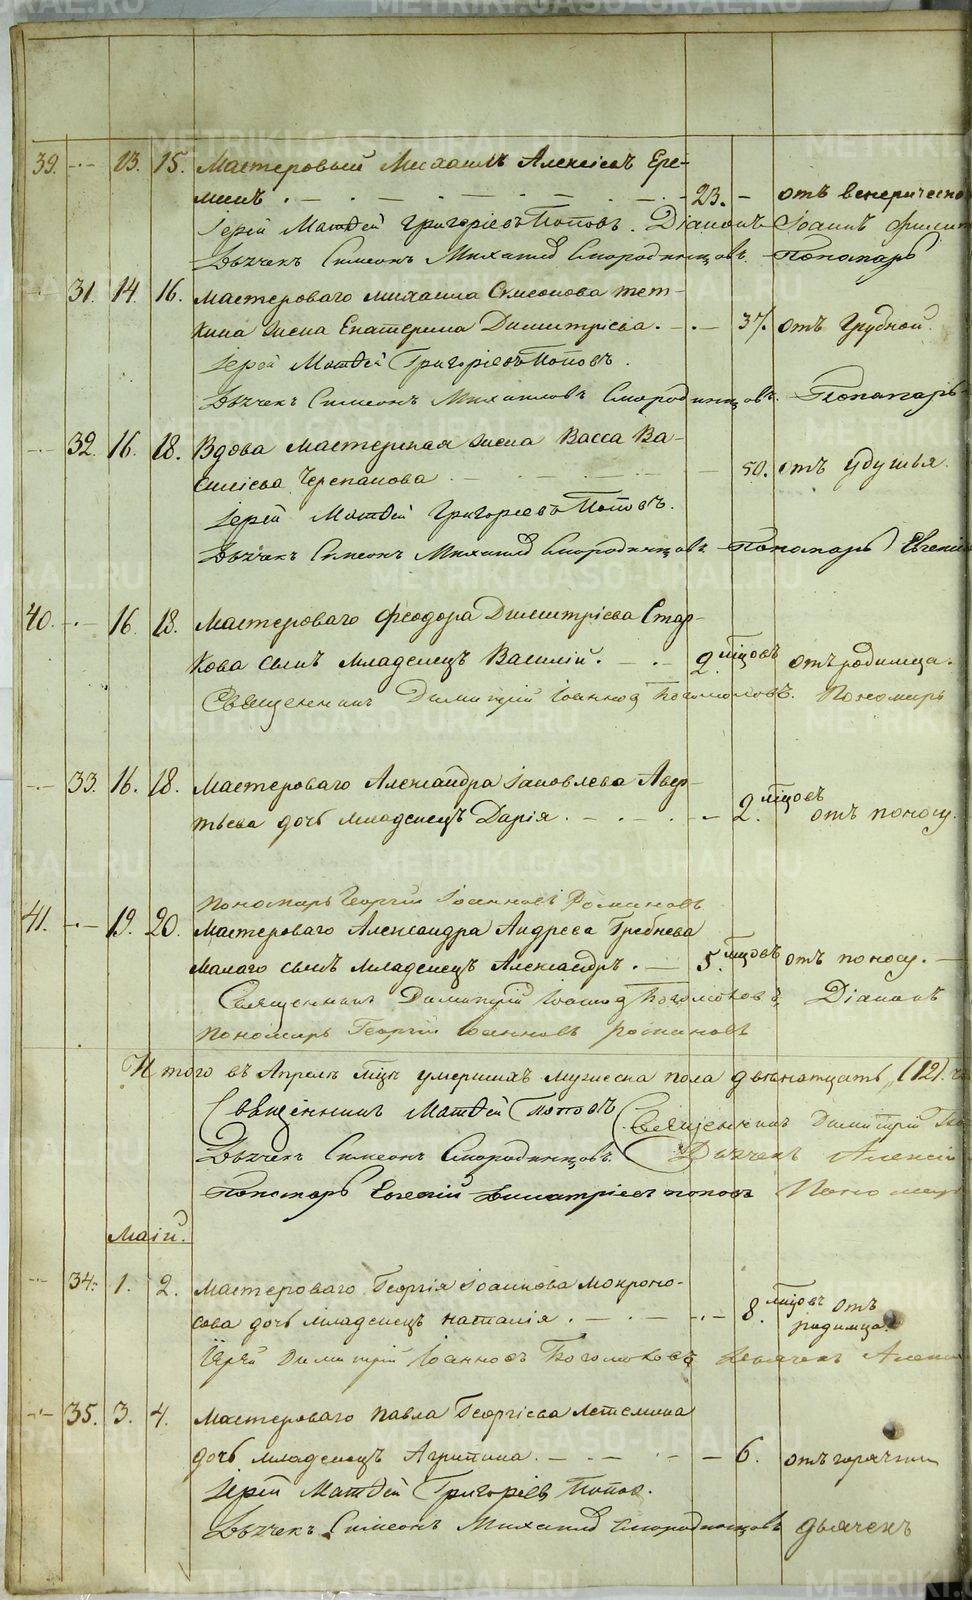 39. 13. 15. Мастеровый Михаилъ Алексѣевъ Ере-
минъ 23. отъ венерическо
Іерей Матѳей Григорьевъ Поповъ. Діаконъ Іоаннъ
Дьячекъ Симеонъ Михайловъ Смородинцовъ. Пономарь
31. 14. 16. Мастероваго Михаила Симеонова тет-
кина жена Екатерина Димитріева. 37. отъ грудной.
Іерей Матѳей Григорьевъ Поповъ.
Дьячекъ Симеонъ Михайловъ Смородинцовъ. Пономарь
32. 16. 18. Вдова мастерская жена Васса Ва-
силіева Черепанова 50. отъ удушья.
Іерей Матѳей Григорьевъ Поповъ.
Дьячекъ Симеонъ Михайловъ Смородинцовъ Пономарь Евгеній
40. 16. 18. Мастероваго Феодора Димитріева Стар-
кова сынъ младенецъ Василій. 2. мцовъ отъ родимца.
Священникъ Димитрій Іоанновъ Богомоловъ. Пономарь
33. 16. 18. Мастероваго Александра Іаковлева Авер-
тьева дочь младенецъ Дарія. 2. мцовъ отъ поносу.
Пономарь Георгій Іоанновъ Романовъ
41. 19. 20. Мастероваго Александра Андреева Гребнева
малаго сынъ младенецъ Александръ. 5. мцовъ отъ поносу.
Священникъ Димитрій Іоанновъ Богомоловъ, Діаконъ
Пономарь Георгій Іоанновъ Романовъ
Итого въ Апрелѣ мцѣ умершихъ мужеска пола двенатцать, (12).
Священникъ Матѳей Поповъ Священникъ Димитрій
Дьячекъ Симеонъ Смородинцовъ. Дьячекъ Алексій
Пономарь Евгеній Димитріевъ Поповъ Пономарь
Маій.
34. 1. 2. Мастероваго Георгія Іоаннова Мокроно-
сова дочь младенецъ Наталія. 8. мцовъ отъ
родимца.
Іерей Димитрій Іоанновъ Богомоловъ Дьячекъ
35. 3. 4. Мастероваго Павла Георгіева Летемина
дочь младенецъ Агрипина. 6. отъ горячки
Іерей Матѳей Григорьевъ Поповъ.
Дьячекъ Симеонъ Михайловъ Смородинцовъ дьячекъ
METRIKI.GASO-URAL.RU